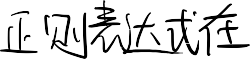 正则表达式在